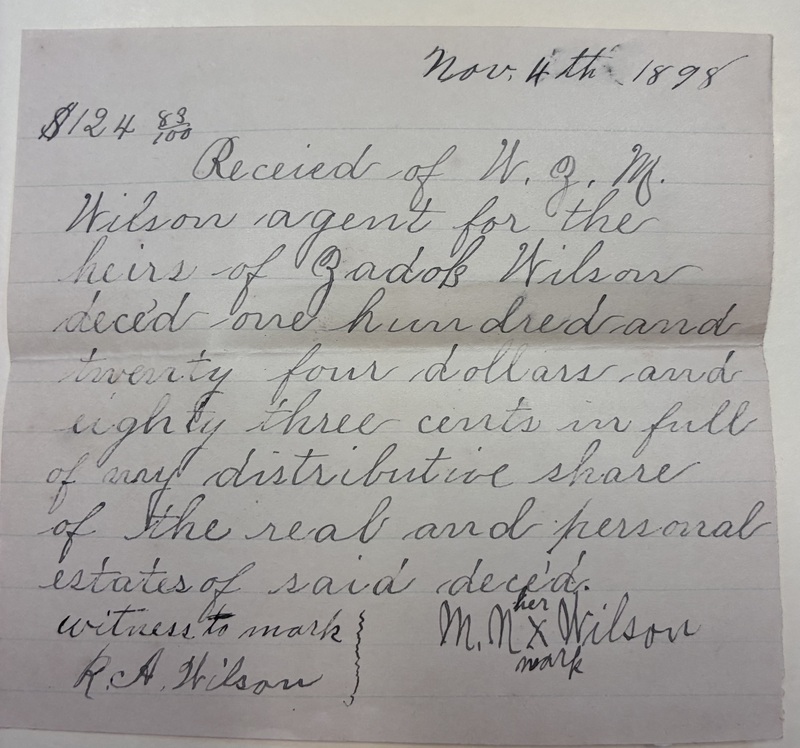 Nov. 4th 1898
$124 83/100
Receied of W. Z. M.
Wilson agent for the
heirs of Zadok Wilson
dece'd one hundred and
twenty four dollars and
eighty three cents in full
of my distributive share
of the real and personal
estates of said dece'd.
her
witness to mark M. N X Wilson
mark
R. A. Wilson